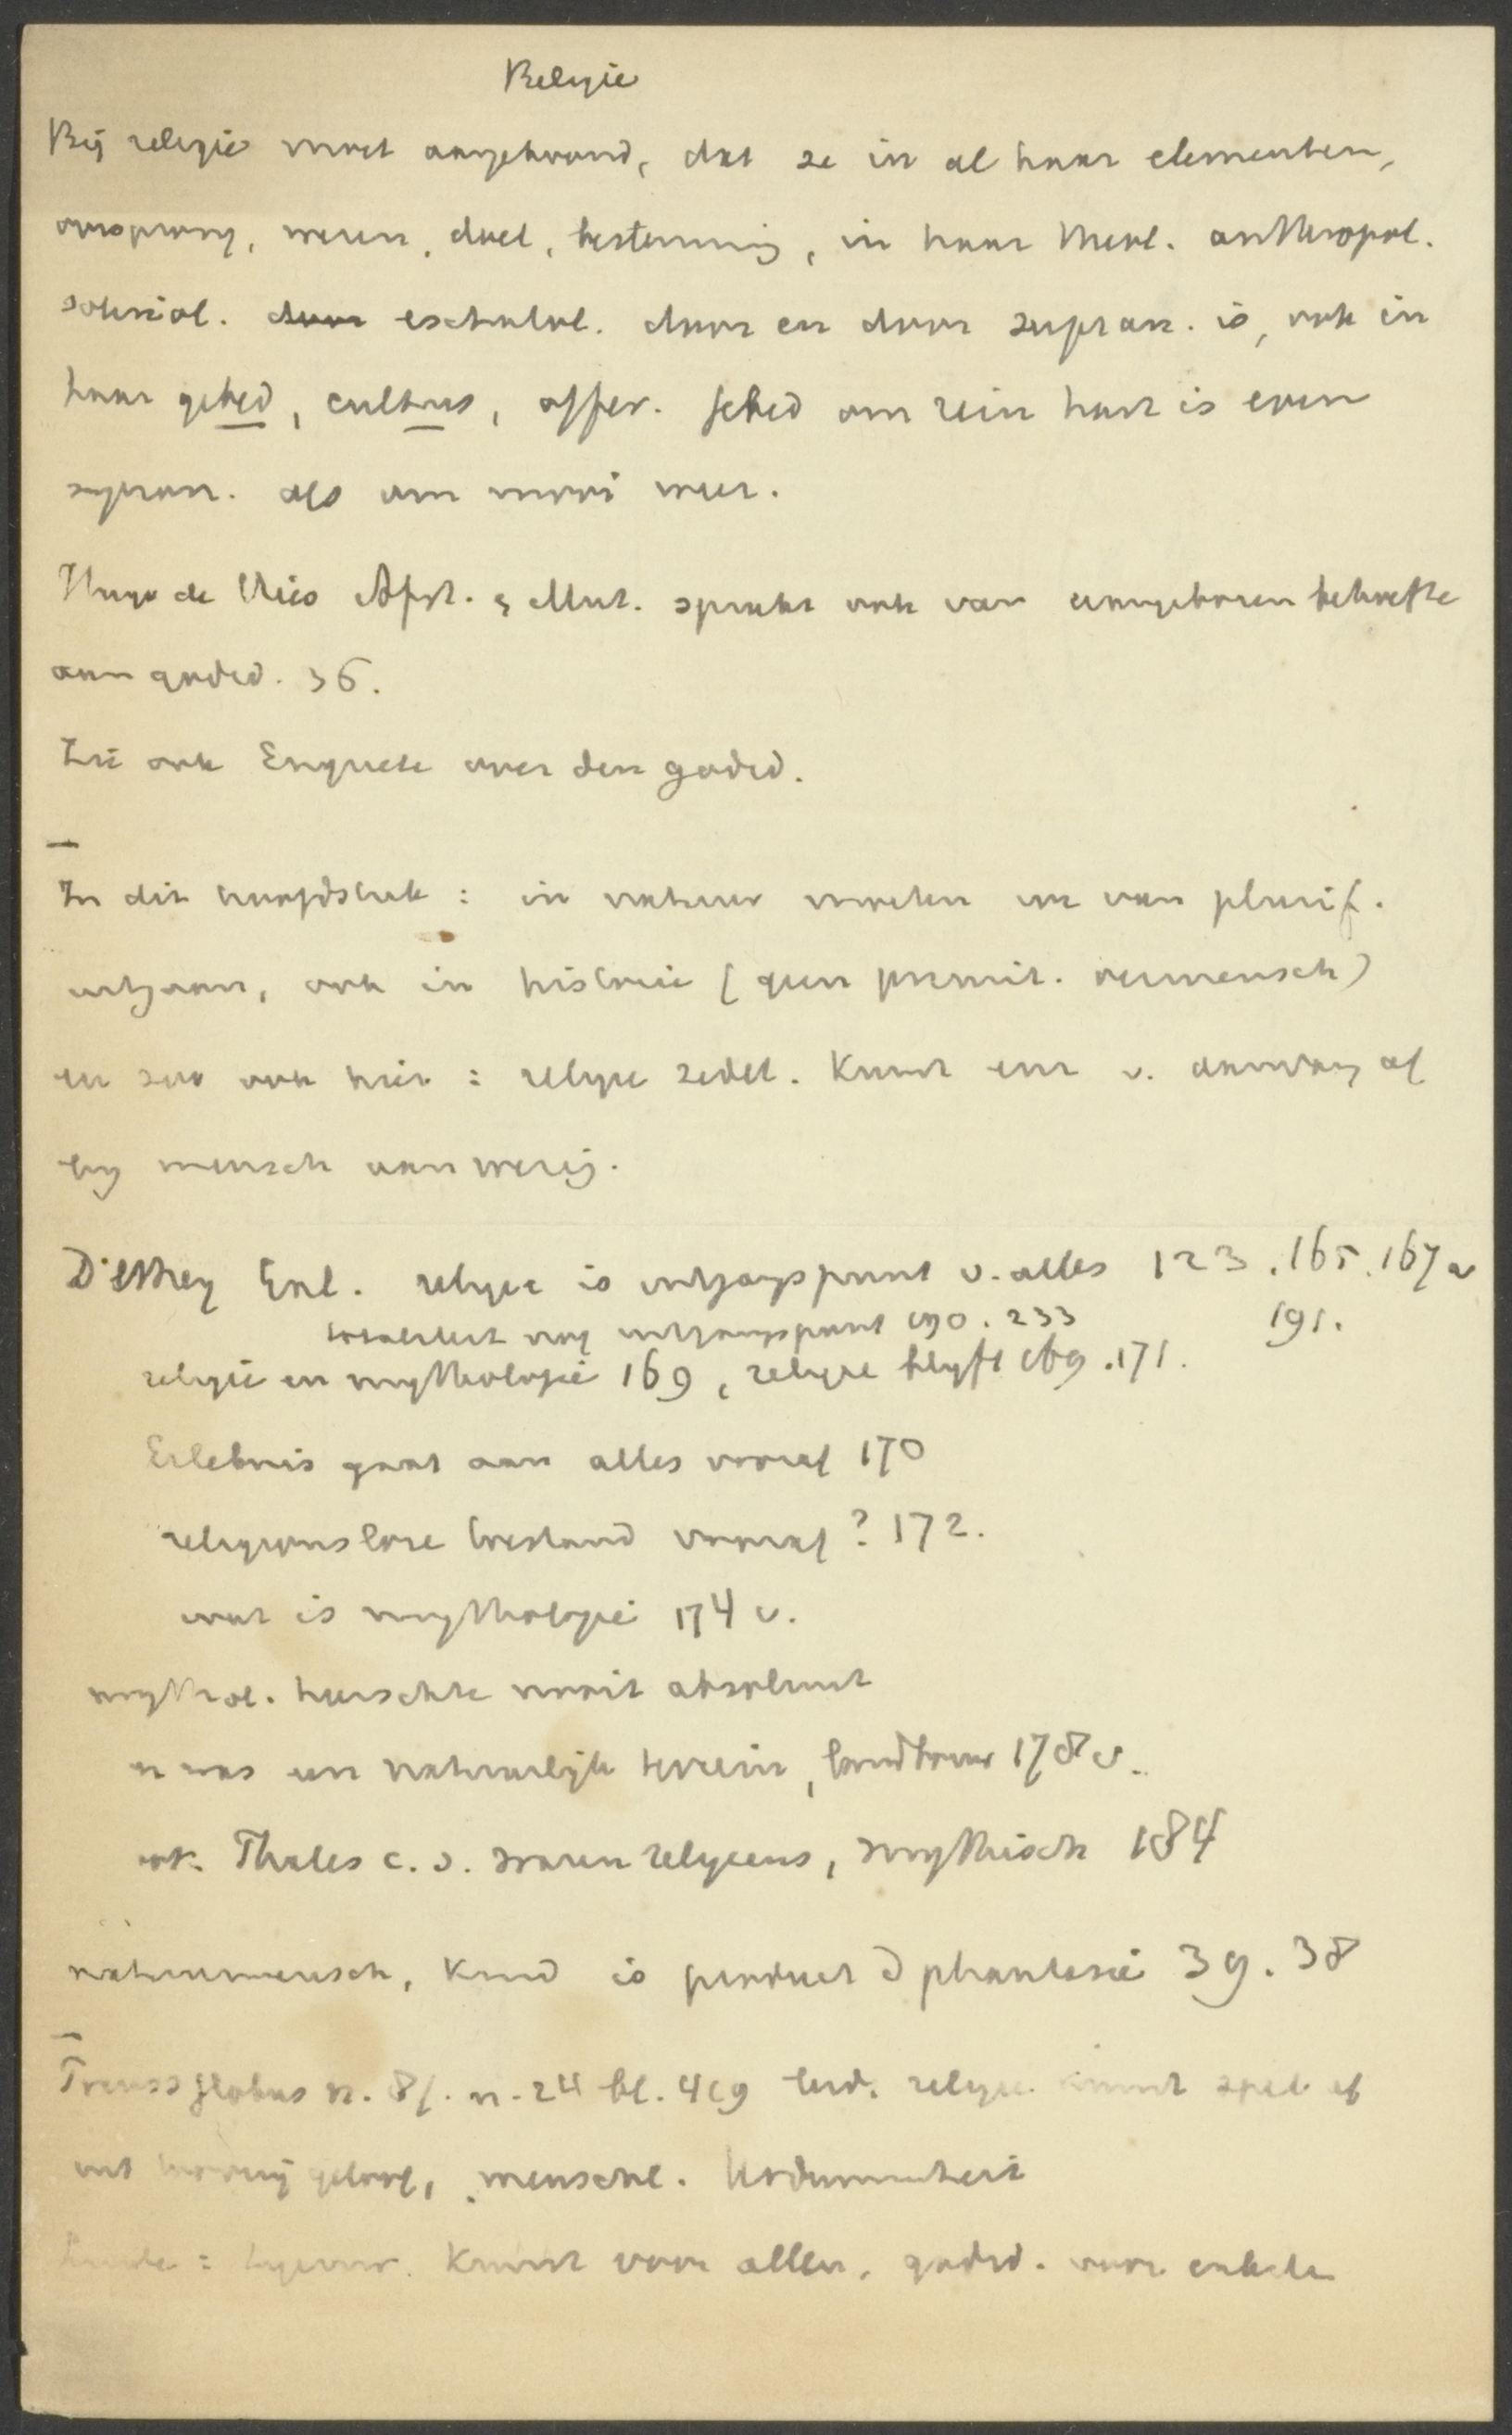 Religie
Bij religie moet aangetoond, dat ze in al haar elementen,
oorsprong, wezen, doel, bestemming, in haar theol. anthropol.
soteriol. door eschatol. door en door supran. is, ook in
haar gebed, cultus, offer. Gebed om rein hart is even
supran. als om mooi weer.
Hugo de Vries Afst. & Mut. spreekt ook van aangeboren behoefte
aan godsd. 36.
Zie ook Enquete over den godsd.
In dit hoofdstuk : in natuur moeten we van plurif.
uitgaan, ook in historie (geen primit. oermensch)
en zoo ook hier : religie zedel. Kunst enz v. aanvang af
bij mensch aanwezig.
Dilthey Einl. religie is uitgangspunt v. alles 123. 165. 167
191.
uitgangspunt 190. 233
religie en mythologie 169, religie blijft 169. 171.
Erlebnis gaat aan alles vooraf 170
religionslose toestand vooraf? 172.
wat is mythologie 174 v.
mythol. heerschte nooit absoluut
er was een natuurlijk terrein, landbouw 178 v.
ook Thales c. s. waren religieus, mythisch 184
natuurmensch, Kind is product d phantasie 39. 38
Preuss Globus n. 87. n. 24 bl. 419 leid. religie kunst spel af
uit tooverij geloof, menschl. Urdummheit
Kunst voor allen, godsd. voor enkele